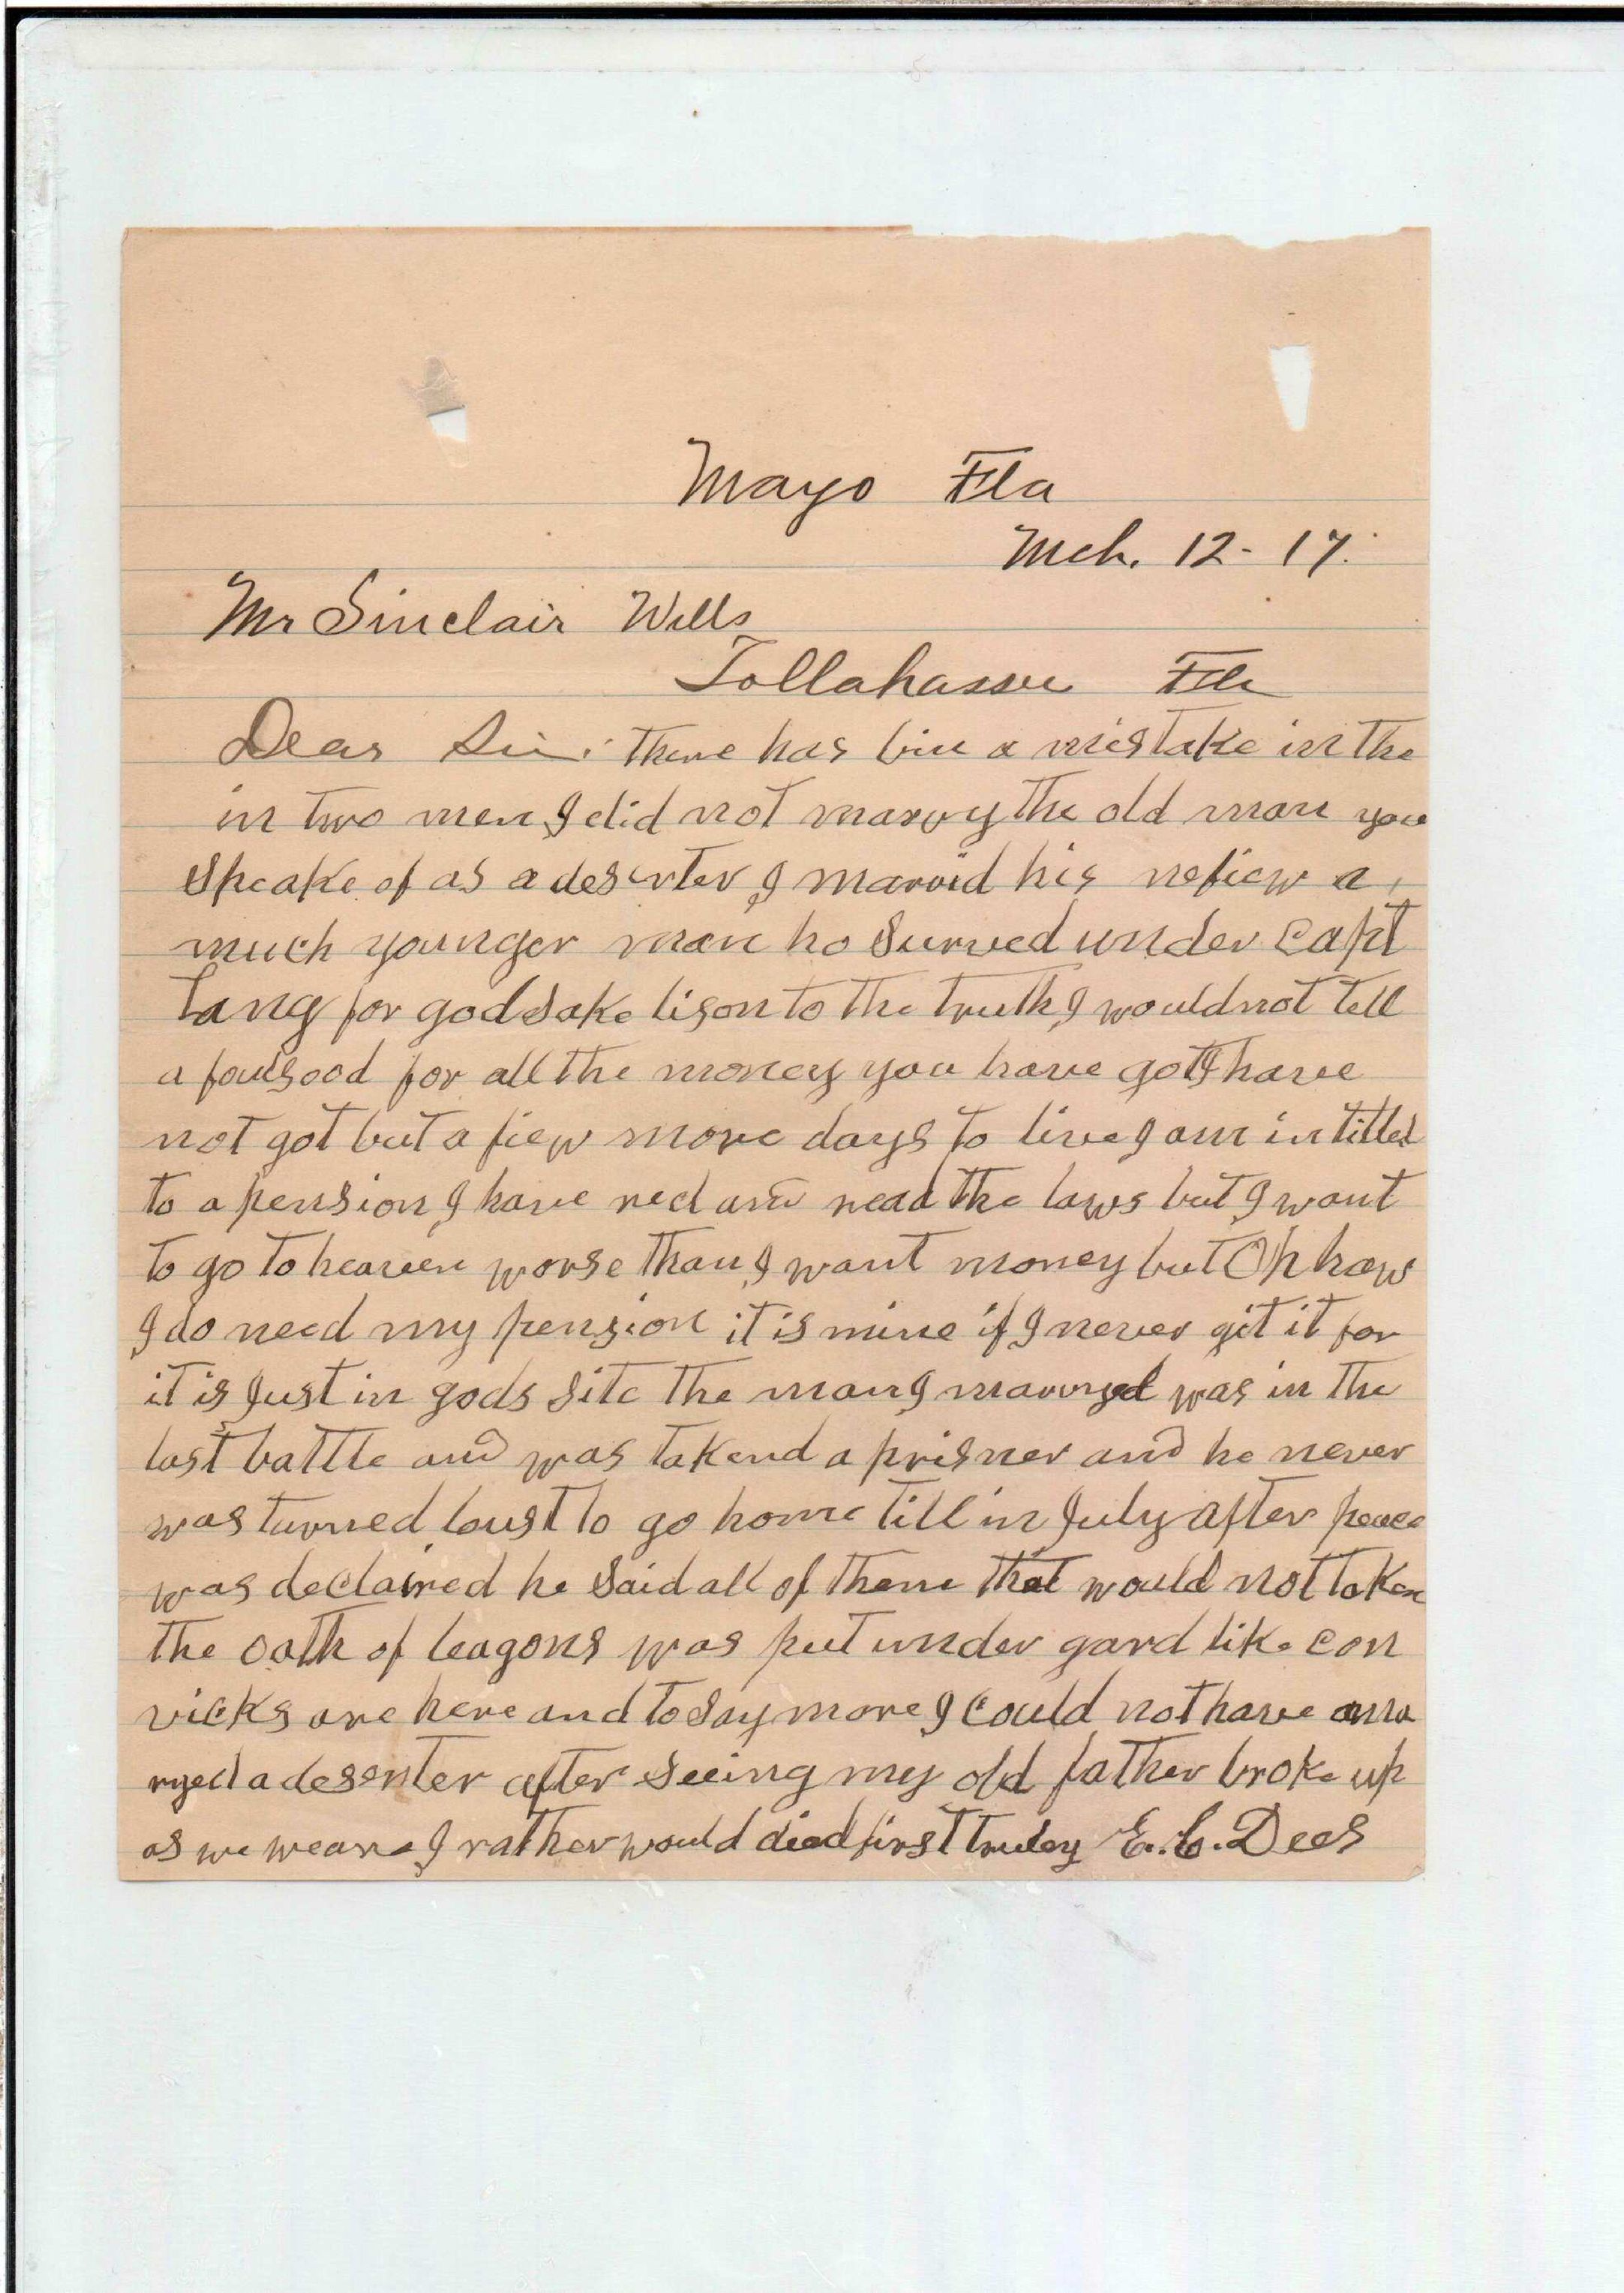 Mayo Fla
Mch. 12 - 17.
Mr Sinclair Wells
Tollahassee Fla
Dear Sir: there has bin a mistake in the
in two men I did not marry the old man you
speake of as a deserter I marrid his nefiew a
much younger man ho Surved under Capt
Lang for god sake lison to the truth I would not tell
a foulsood for all the money you have got I have
not got but a fiew more days to live I am intitled
to a pension I have red and read the laws but I want
to go to heaven worse than I want money but Oh how
I do need my pension it is mine if I never git it for
it is Just in gods Site the man I marryed was in the
last battle and was takend a prisner and he never
was turned loust to go home till in July after peace
was declaired he Said all of them that would not taken
the oath of leagons was put under gard like con
vicks are here and to Say more I could not have ma
ryed a deserter after Seeing my old father broke up
as we weare I rather would died first truley E. C. Dees